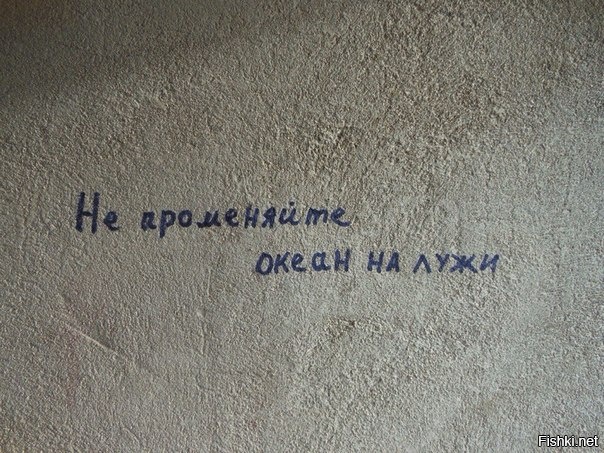 Не променяйте
океан на лужи
Fishki.net